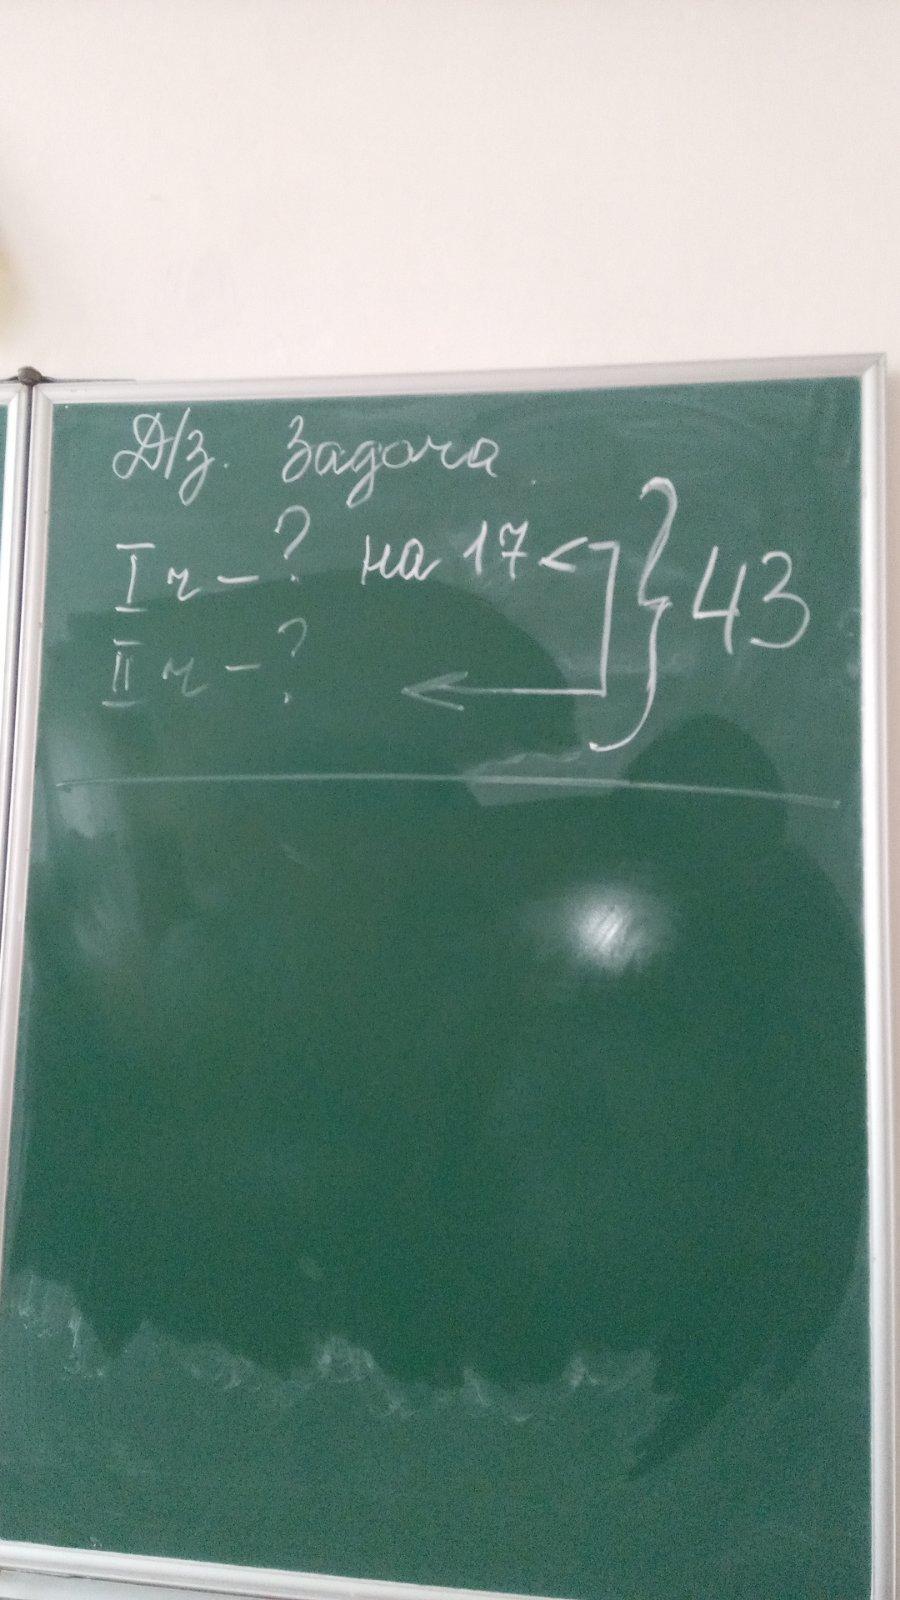 Д/з. Задача
I ч - ? на 17 < } 43
II ч - ?